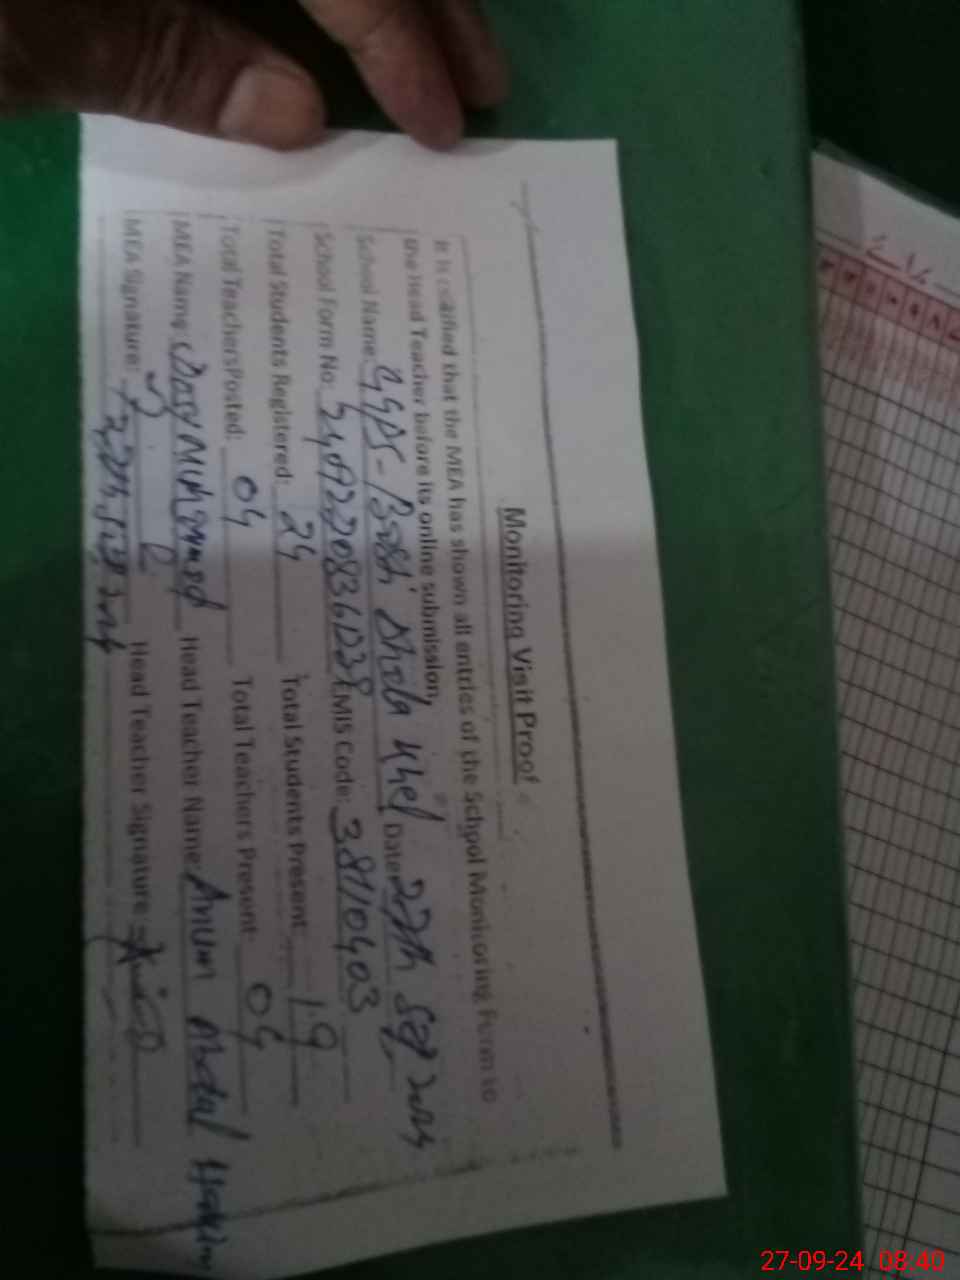 Monitoring Visit Proof
It is certified that the MEA has shown all entries of the School Monitoring Form to
the Head Teacher before its online submission.
School Name: GGPS- Khel Date: 27th Sep 2024
School Form No: EMIS Code: 38110403
Total Students Registered: 24 Total Students Present: 19
Total Teachers Posted: 04 Total Teachers Present: 04
MEA Name: Muhammad Head Teacher Name: Anum Abdul Hakim
MEA Signature: Head Teacher Signature:
27th Sep 2024
27-09-24 08:40